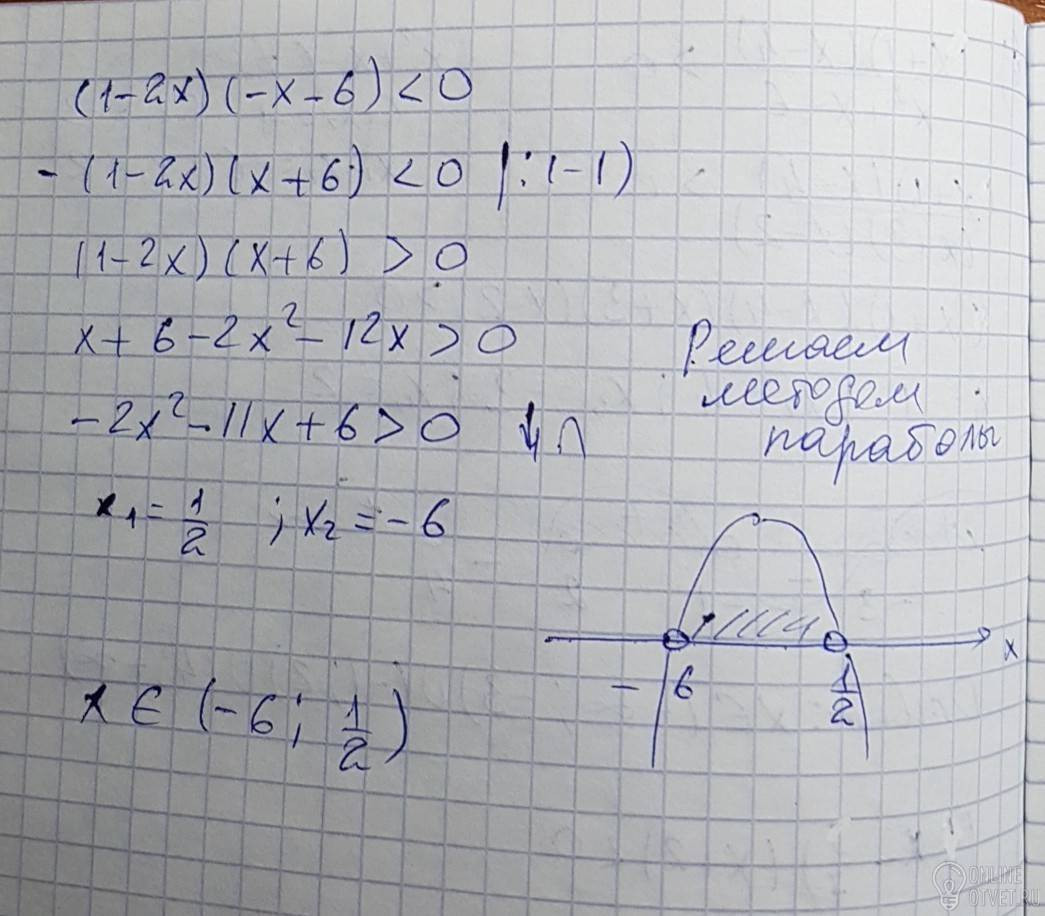 (1-2x)(-x-6)<0
-(1-2x)(x+6)<0 |:(-1)
(1-2x)(x+6)>0
x+6-2x²-12x>0
-2x²-11x+6>0 ↓∩
x₁=1/2 ; x₂=-6
x∈(-6; 1/2)
Решаем
методом
параболы
-6 1/2 x
ONLINE
OTVET.RU